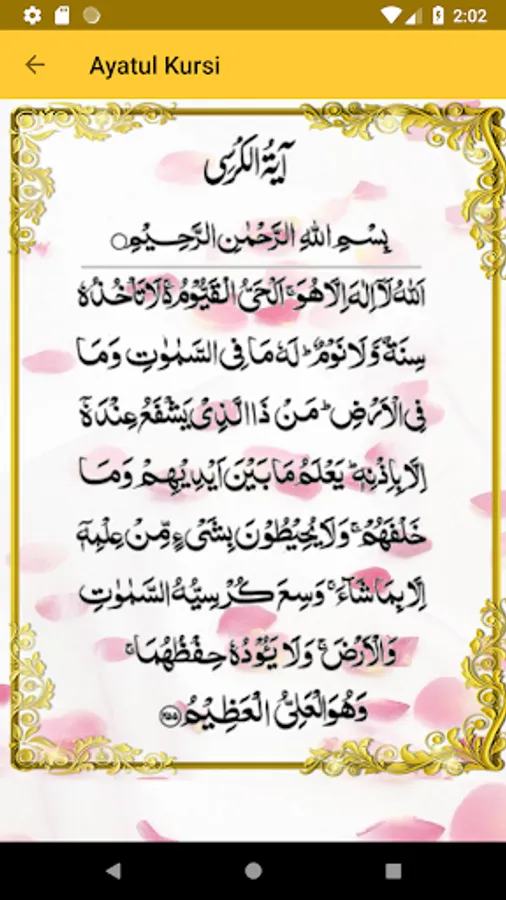 2:02
Ayatul Kursi
آيَةُ الْكُرْسِى
بِسْمِ اللهِ الرَّحْمٰنِ الرَّحِيْمِ○
اَللهُ لَآ اِلٰهَ اِلَّا هُوَ ۚ اَلْحَىُّ الْقَيُّوْمُ ۚ لَا تَاْخُذُهٗ
سِنَةٌ وَّلَا نَوْمٌ ؕ لَهٗ مَا فِى السَّمٰوٰتِ وَمَا
فِى الْاَرْضِ ؕ مَنْ ذَا الَّذِىْ يَشْفَعُ عِنْدَهٗۤ
اِلَّا بِاِذْنِهٖ ؕ يَعْلَمُ مَا بَيْنَ اَيْدِيْهِمْ وَمَا
خَلْفَهُمْ ۚ وَلَا يُحِيْطُوْنَ بِشَىْءٍ مِّنْ عِلْمِهٖۤ
اِلَّا بِمَا شَآءَ ۚ وَسِعَ كُرْسِيُّهُ السَّمٰوٰتِ
وَالْاَرْضَ ۚ وَلَا يَـُٔوْدُهٗ حِفْظُهُمَا ۚ
وَهُوَ الْعَلِىُّ الْعَظِيْمُ ﴿۲۵۵﴾